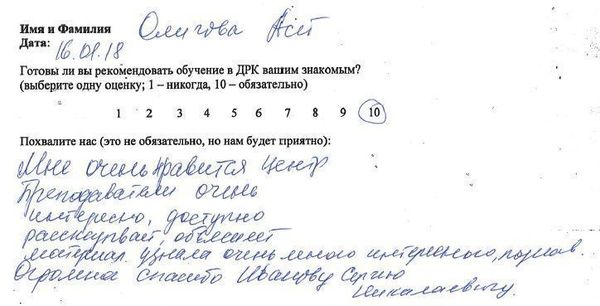 Имя и Фамилия Олигова Ася
Дата: 16.01.18
Готовы ли вы рекомендовать обучение в ДРК вашим знакомым?
(выберите одну оценку; 1 – никогда, 10 – обязательно)
1 2 3 4 5 6 7 8 9 10
Похвалите нас (это не обязательно, но нам будет приятно):
Мне очень нравится центр
Преподаватели очень
интересно, доступно
рассказывает, объясняет
материал. узнала очень много интересного,
Огромное спасибо Иванову Сергею
Николаевичу.